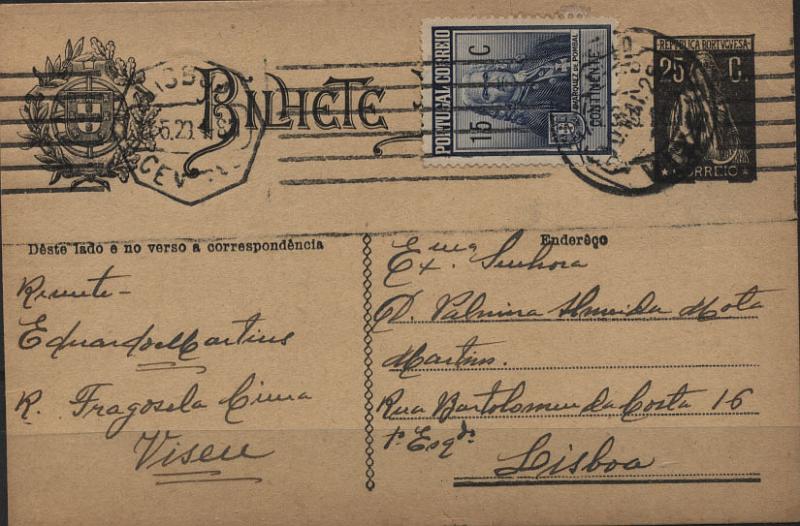 BILHETE
PORTUGAL CORREIO
15 C
MARQUEZ DE POMBAL
CONTINENTE
REPUBLICA PORTUGUESA
25 C.
CORREIO
Dêste lado e no verso a correspondência
Remete-
Eduardo Martins
R. Fragosela Cima
Viseu
Enderêço
Exma. Senhora
D. Palmira Almeida Mota
Martins.
Rua Bartolomeu da Costa 16
1º Esqdo.
Lisboa